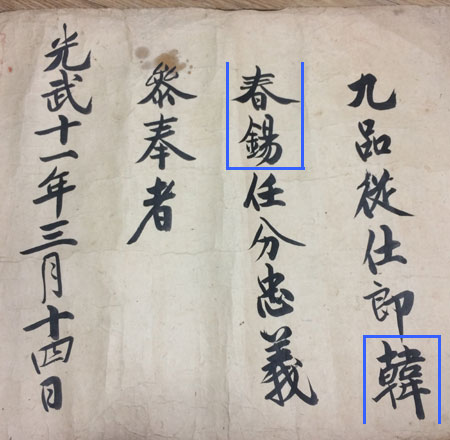 九品從仕郎韓
春錫任分忠義
叅奉者
光武十一年三月十四日